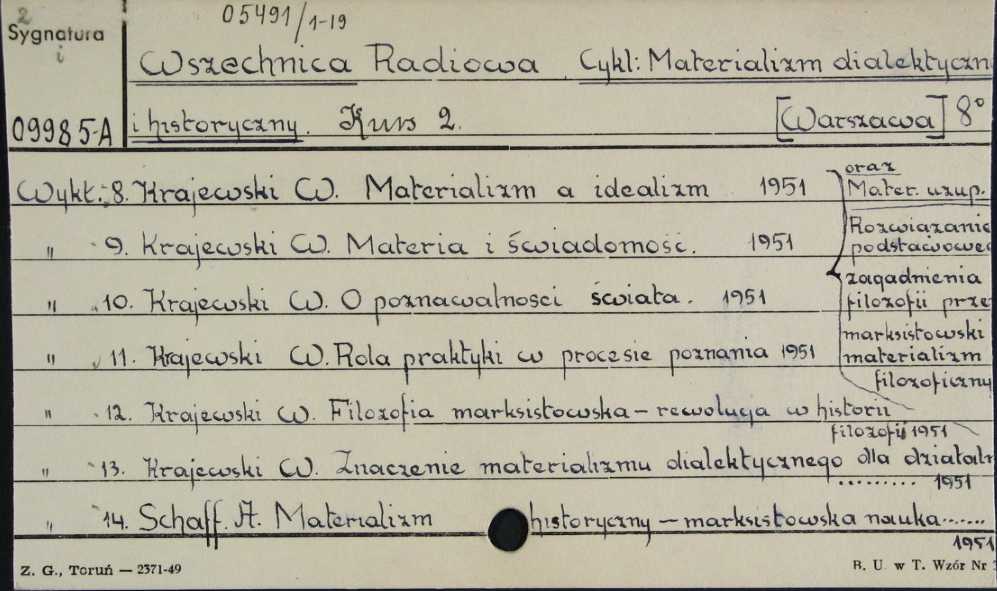 2
05491/1-19
Sygnatura
i
Wszechnica Radiowa Cykl: Materializm dialektyczn
09985-A i historyczny. Kurs 2. [Warszawa] 8°
Wykł. 8. Krajewski W. Materializm a idealizm 1951
" 9. Krajewski W. Materia i świadomość. 1951
" 10. Krajewski W. O poznawalności świata. 1951
" 11. Krajewski W. Rola praktyki w procesie poznania 1951
" 12. Krajewski W. Filozofia marksistowska – rewolucja w historii
filozofii 1951
" 13. Krajewski W. Znaczenie materializmu dialektycznego dla działaln
......... 1951
" 14. Schaff. A. Materializm historyczny – marksistowska nauka.......
1951
oraz
Mater. uzup.
Rozwiązanie
podstawoweg
zagadnienia
filozofii prze
marksistowski
materializm
filozoficzny
Z. G., Toruń — 2371-49
B. U. w T. Wzór Nr